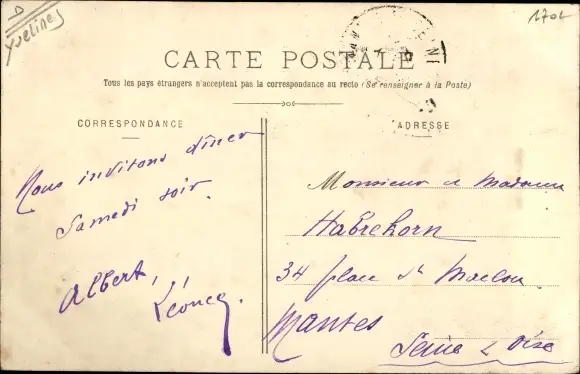 Yvelines
1704
CARTE POSTALE
Tous les pays étrangers n'acceptent pas la correspondance au recto (Se renseigner à la Poste)
CORRESPONDANCE
ADRESSE
Nous invitons dîner
Samedi soir.
Albert,
Monsieur et Madame
Habrekorn
34 place St Maclou
Mantes
Seine & Oise